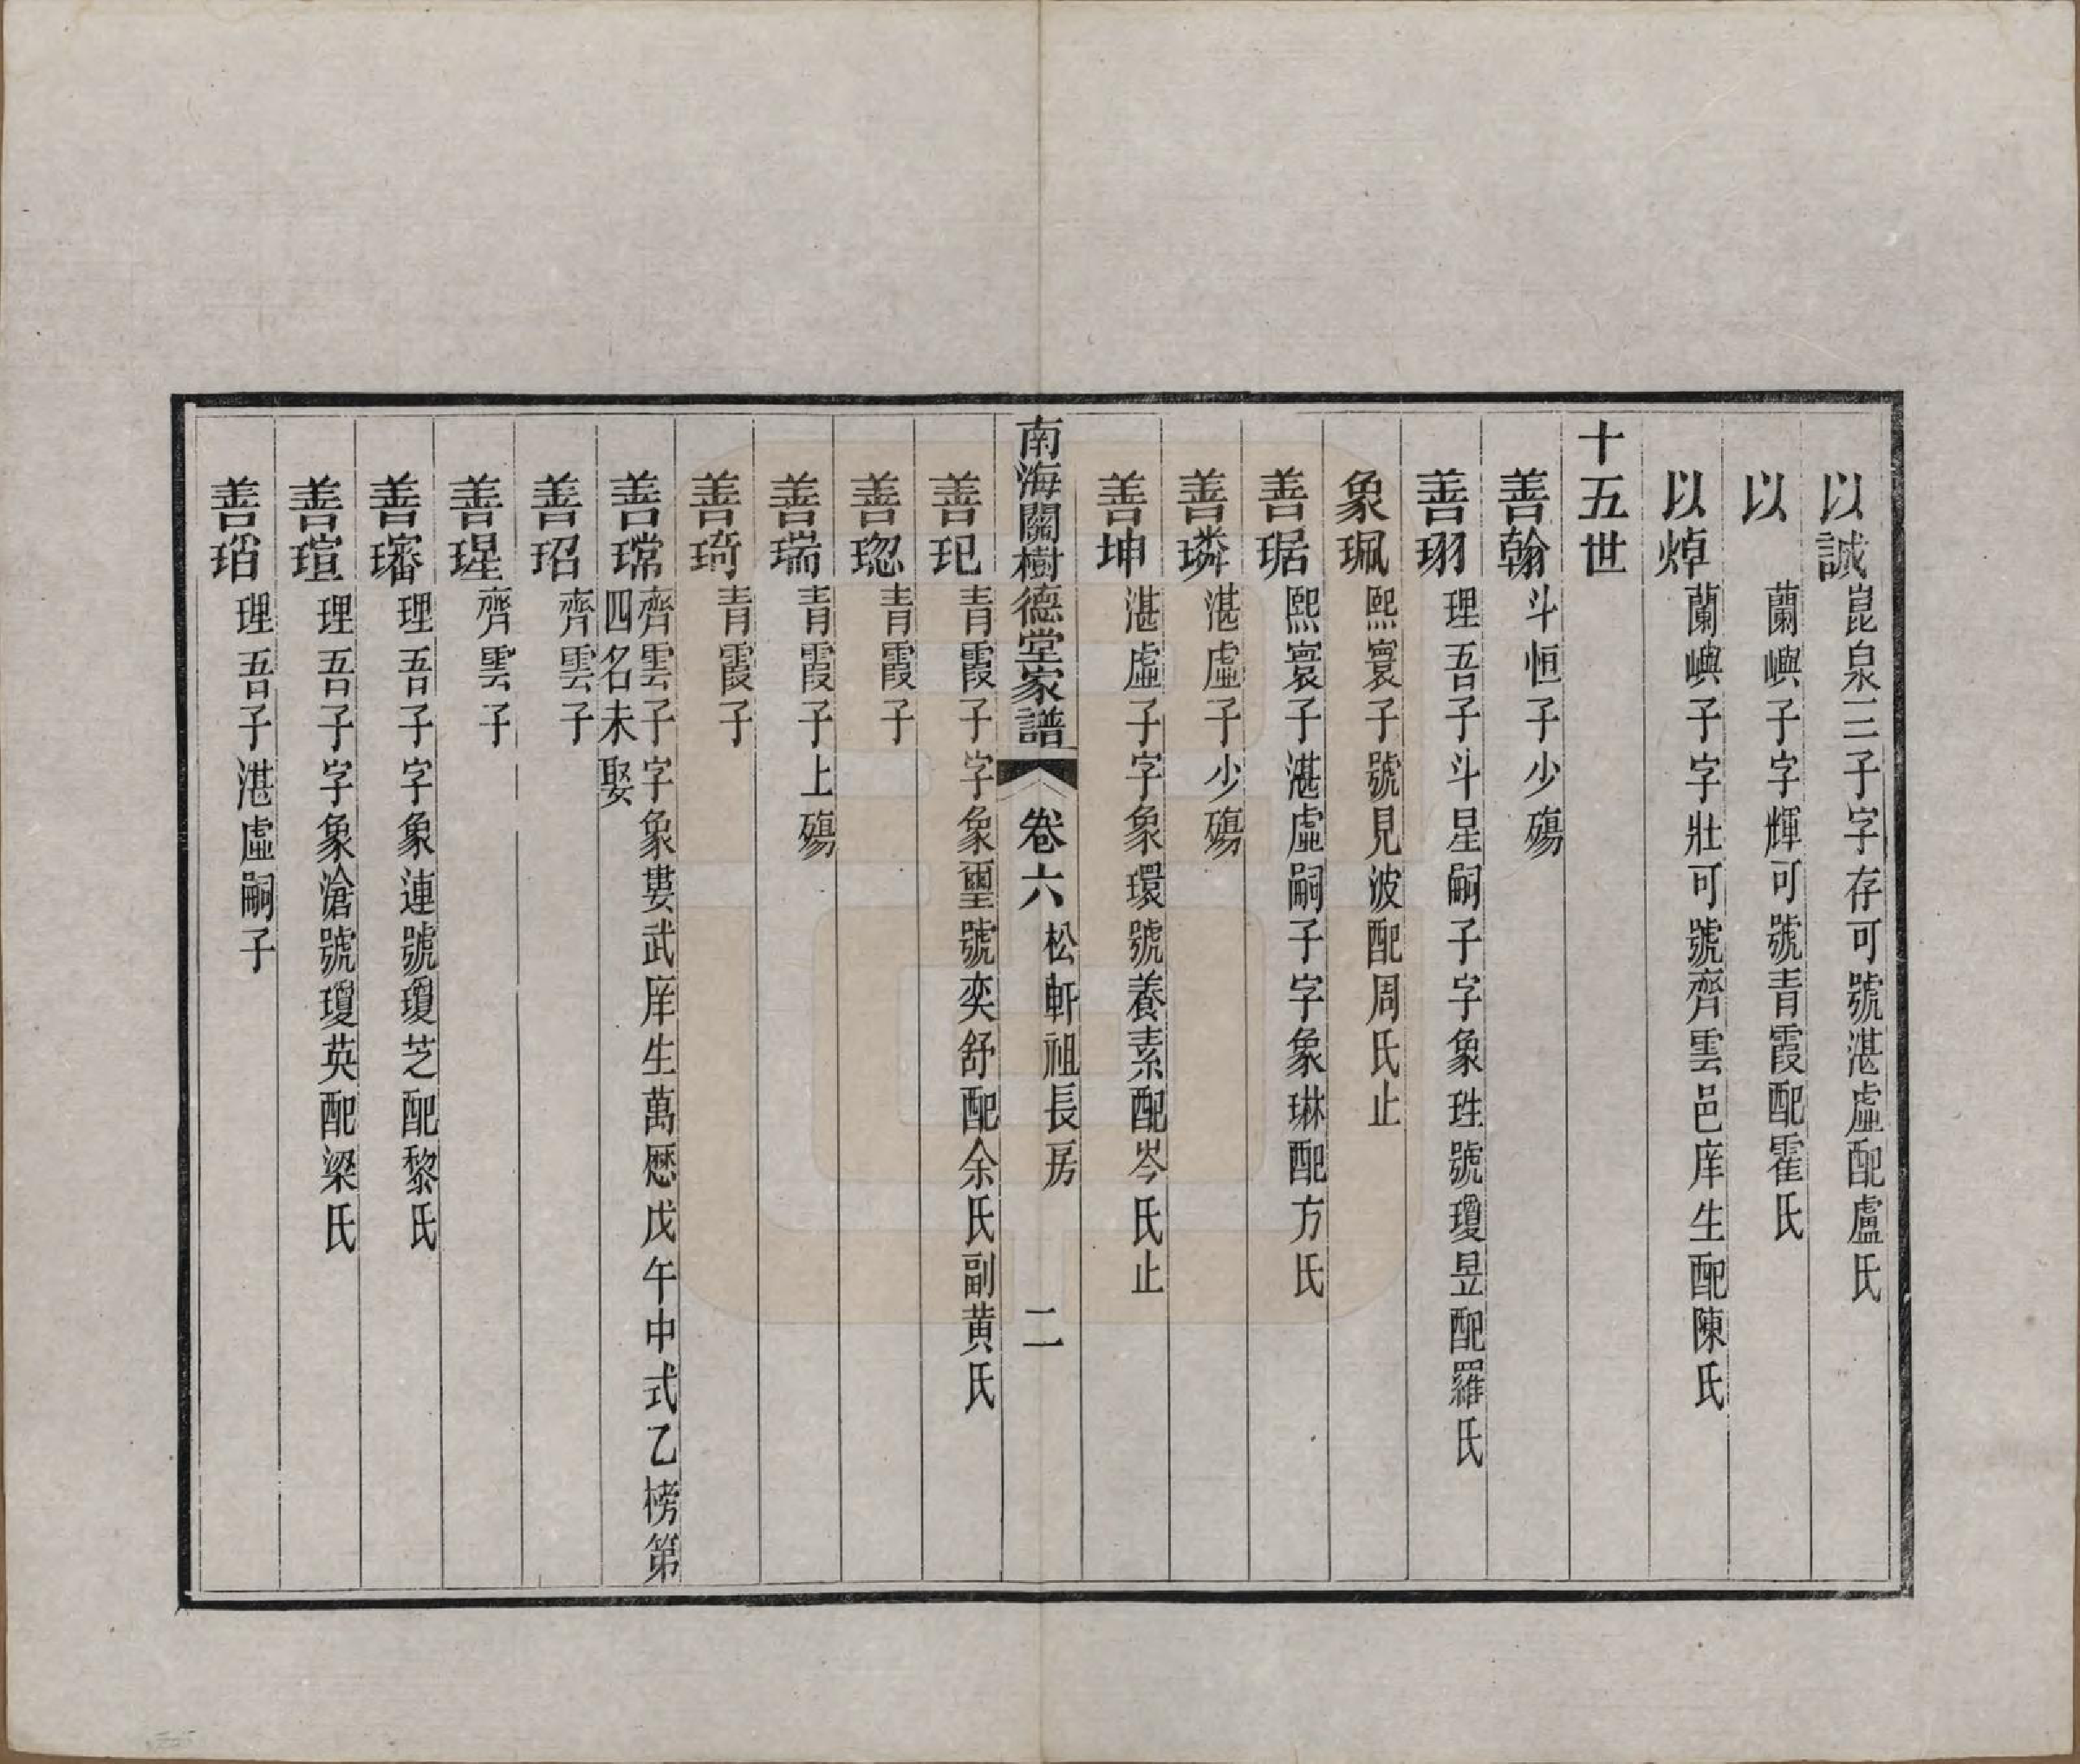 以誠崑泉三子字存可號湛虛配盧氏
以　蘭嶼子字輝可號青霞配霍氏
以焯蘭嶼子字壯可號齊雲邑庠生配陳氏
十五世
善翰斗恒子少殤
善珝理吾子斗星嗣子字象珄號瓊昱配羅氏
象珮熙寰子號見波配周氏止
善琚熙寰子湛虛嗣子字象琳配方氏
善璘湛虛子少殤
善坤湛虛子字象環號養素配岑氏止
南海關樹德堂家譜　卷六　松軒祖長房　二
善玘青霞子字象璽號奕舒配余氏副黃氏
善璁青霞子
善瑞青霞子上殤
善琦青霞子
善瑺齊雲子字象婁武庠生萬厯戊午中式乙榜第
四名未娶
善玿齊雲子
善瑆齊雲子
善璿理吾子字象連號瓊芝配黎氏
善瑄理吾子字象滄號瓊英配梁氏
善瑫理吾子湛虛嗣子